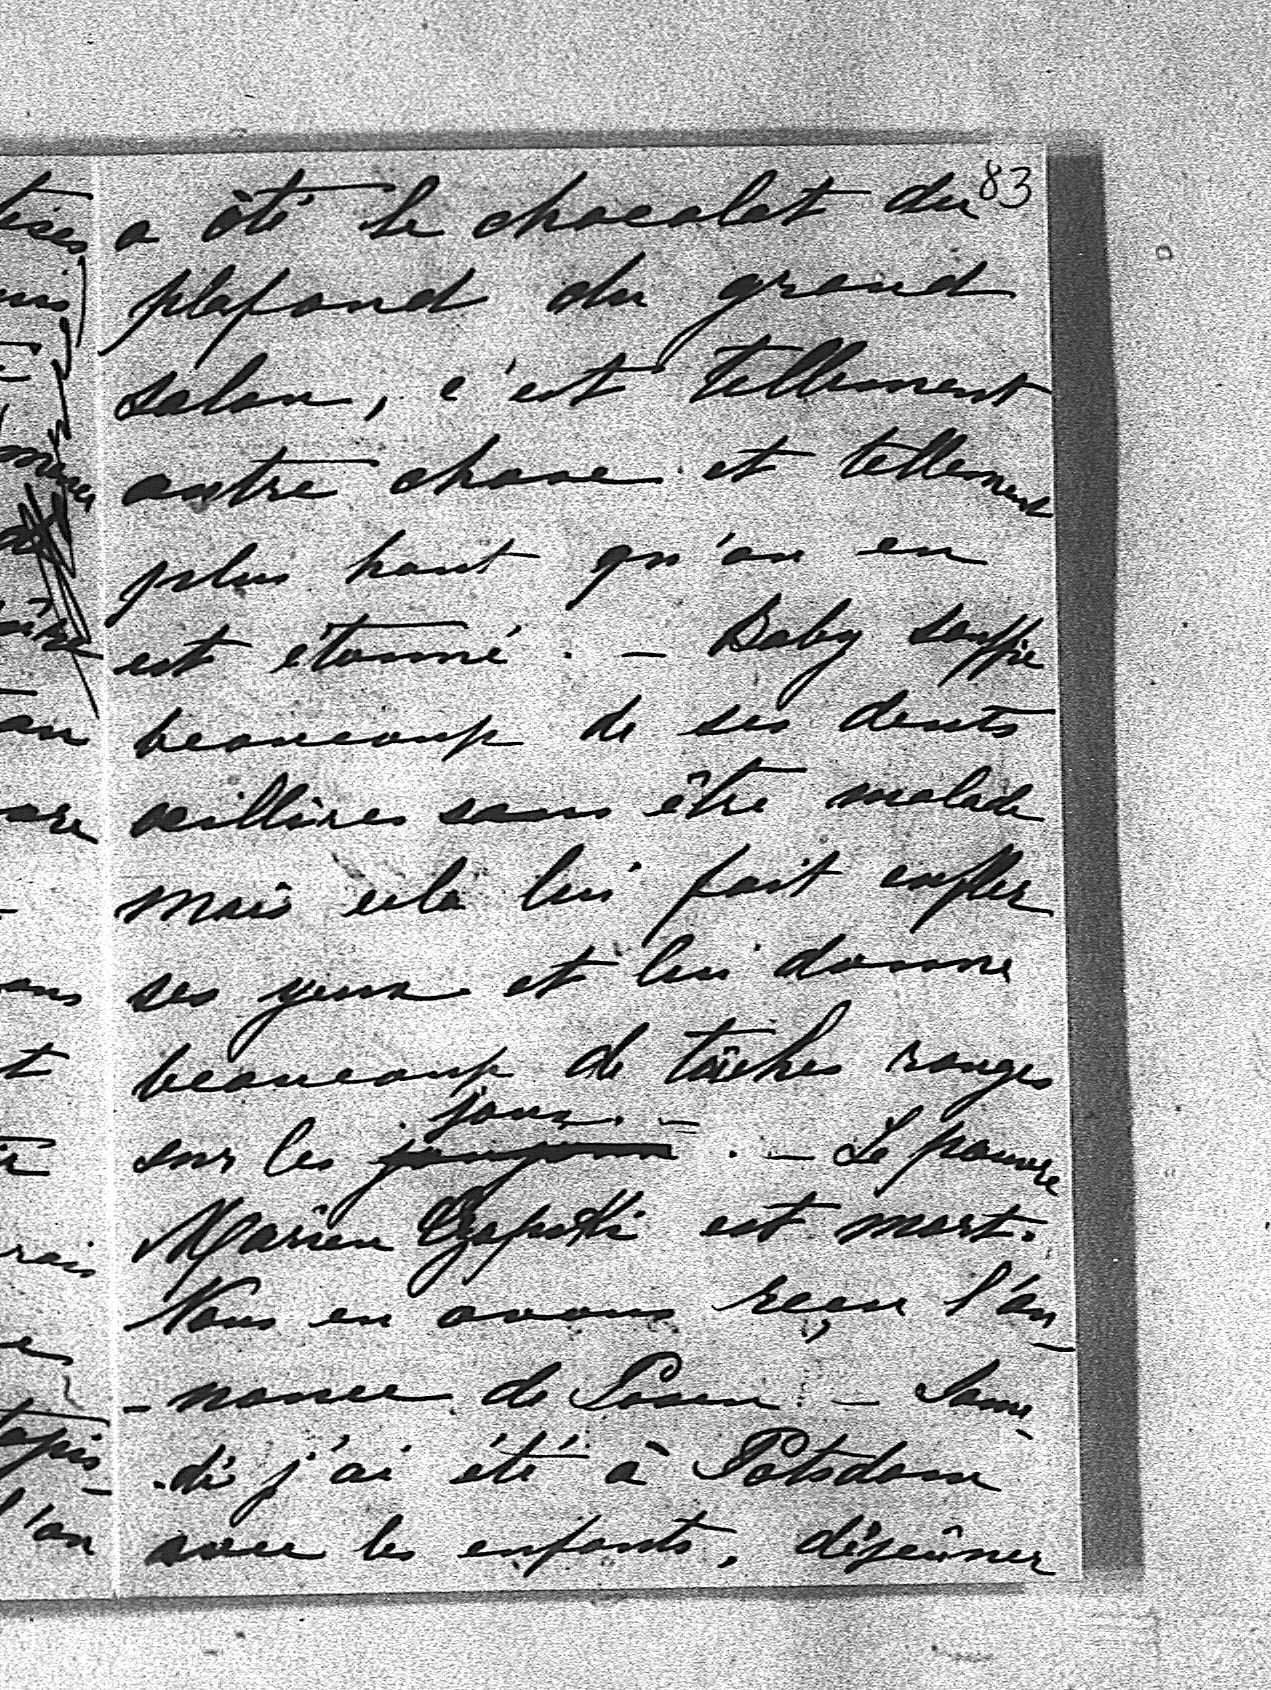 83
a ôté le chocolat du
plafond du grand
salon, c'est tellement
autre chose et tellement
plus haut qu'on en
est étonné. — Baby souffre
beaucoup de ses dents
œillères sans être malade
mais cela lui fait enfler
ses yeux et lui donne
beaucoup de tâches rouges
sur les joues. — Le pauvre
Marien Czapski est mort.
Nous en avons reçu l'an-
-nonce de Posen. — Same-
di j'ai été à Potsdam
avec les enfants, déjeûner